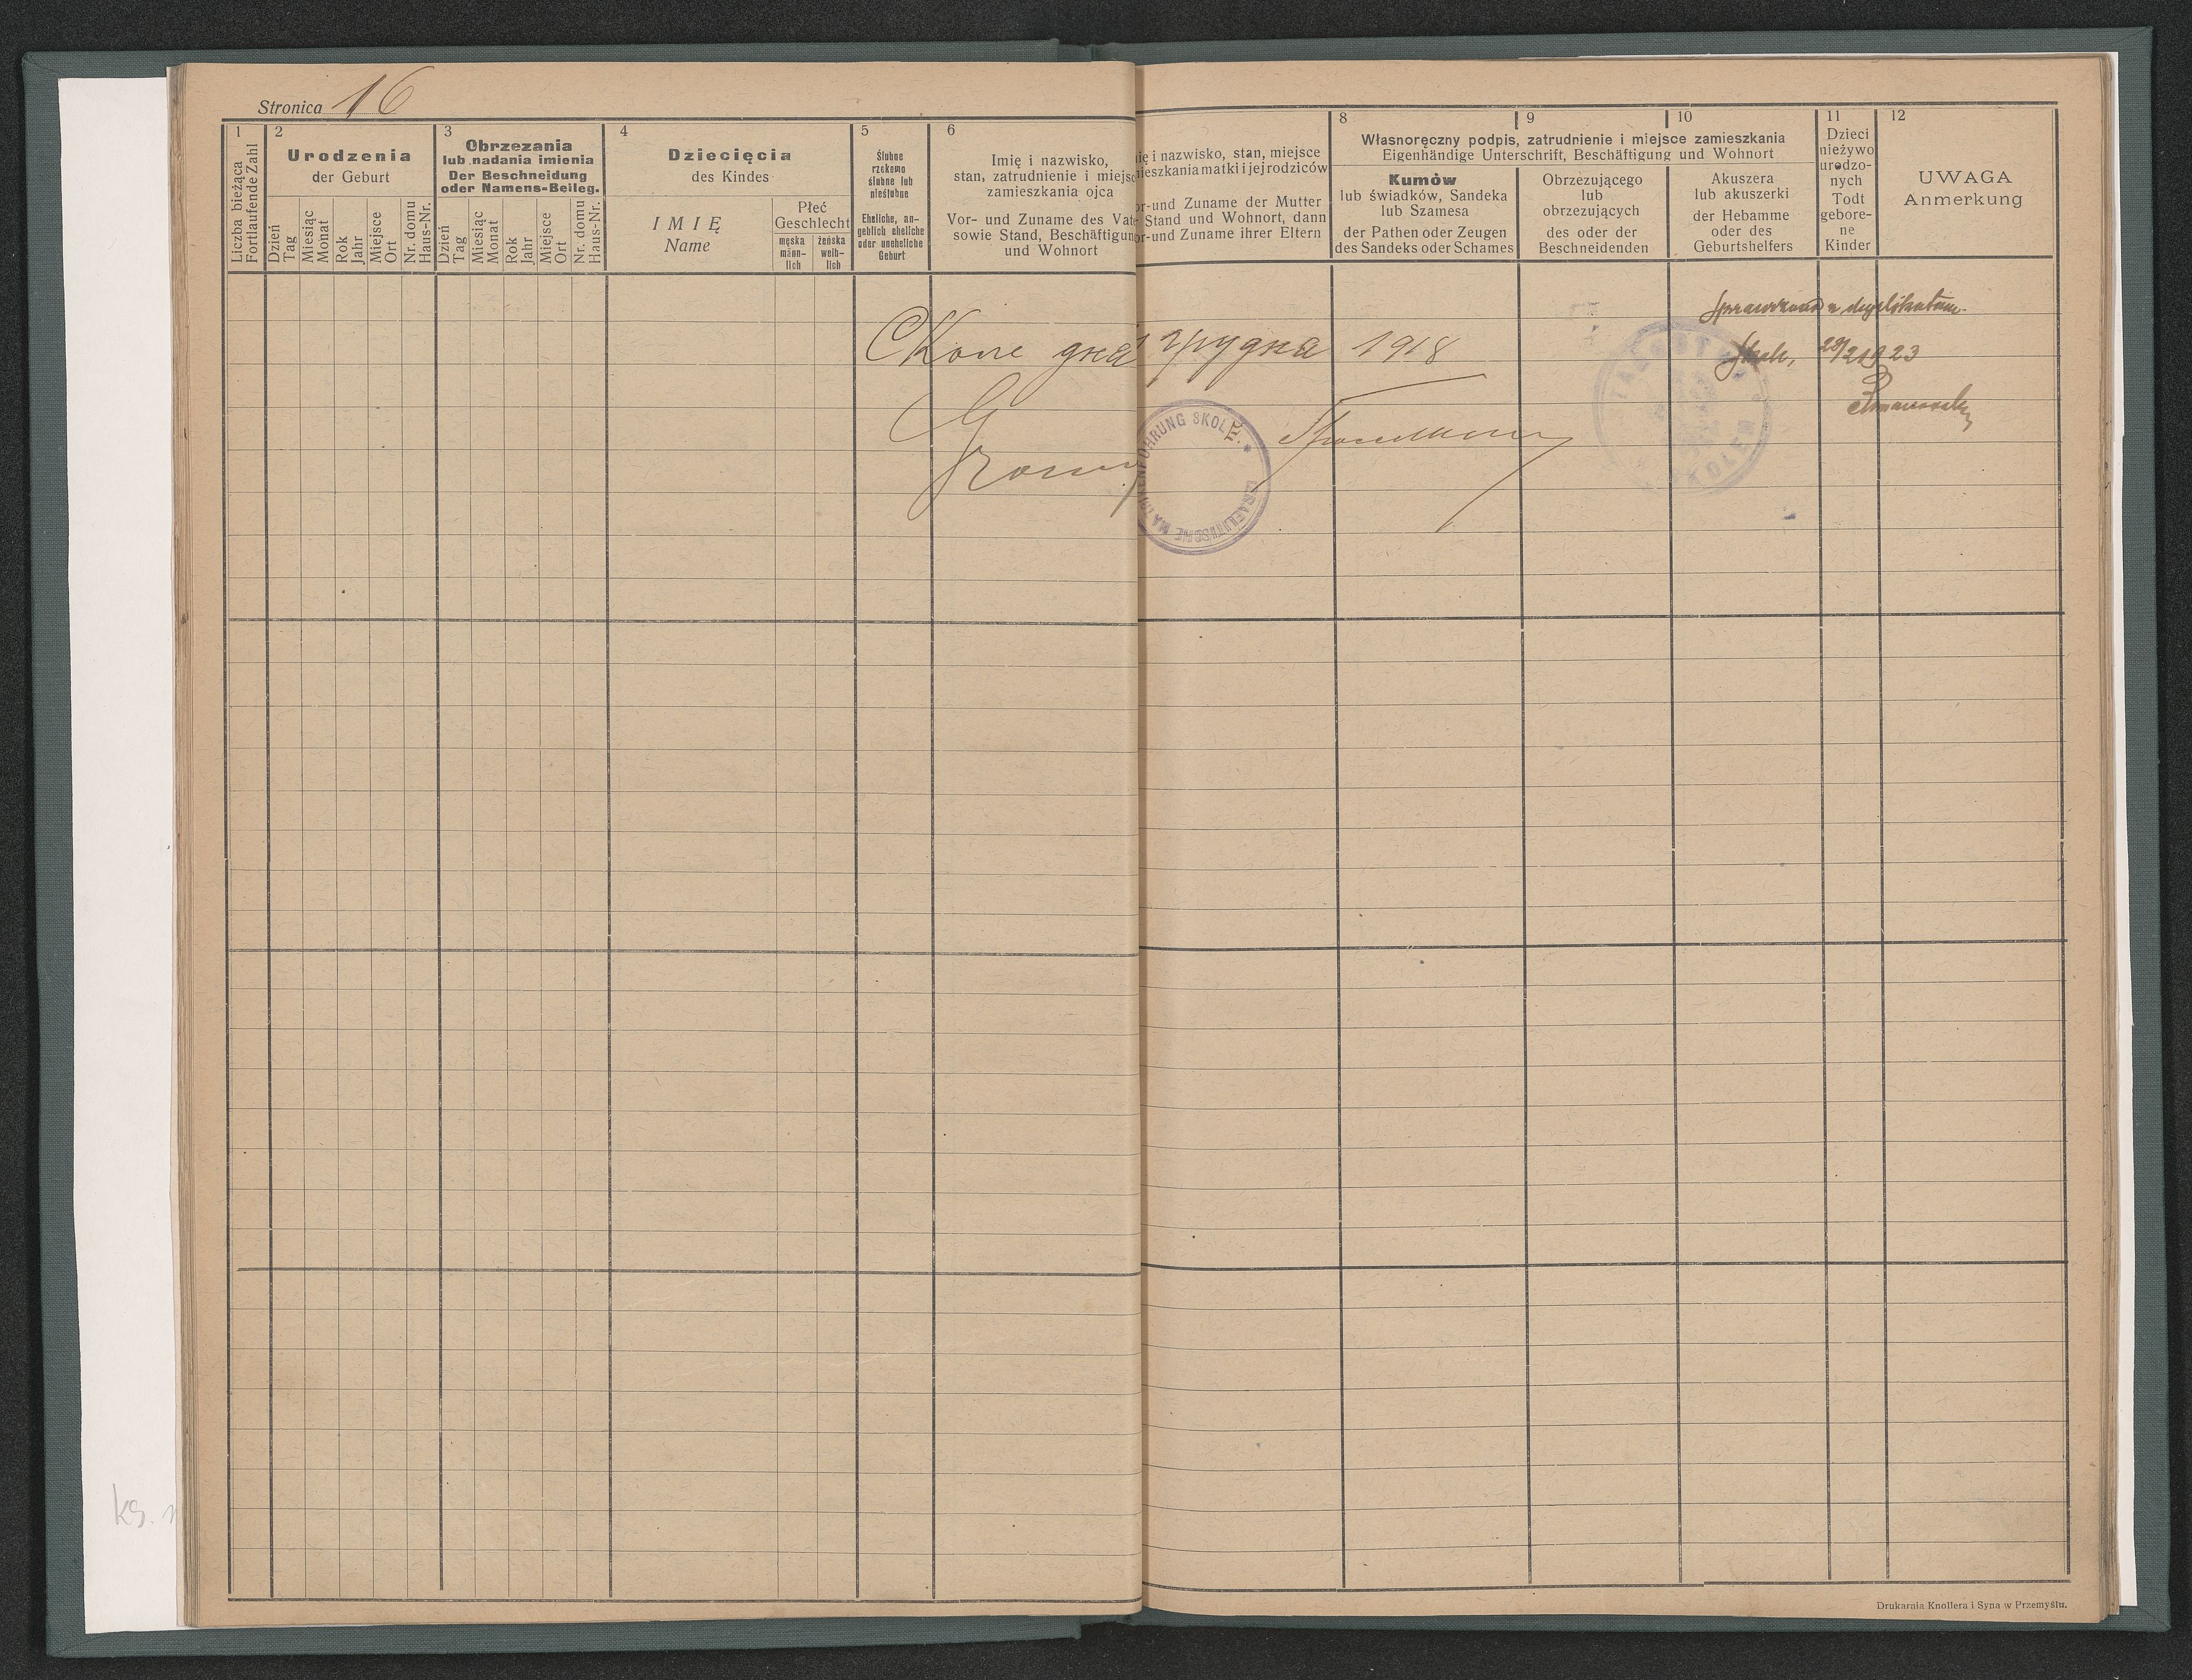 Stronica 16
1
Liczba bieżąca
Fortlaufende Zahl
2
Urodzenia
der Geburt
Dzień
Tag
Miesiąc
Monat
Rok
Jahr
Miejsce
Ort
Nr. domu
Haus-Nr.
3
Obrzezania
lub nadania imienia
Der Beschneidung
oder Namens-Beileg.
Dzień
Tag
Miesiąc
Monat
Rok
Jahr
Miejsce
Ort
Nr. domu
Haus-Nr.
4
Dziecięcia
des Kindes
IMIĘ
Name
Płeć
Geschlecht
męska
männ-
lich
żeńska
weib-
lich
5
Ślubne
rzekomo
ślubne lub
nieślubne
Eheliche, an-
geblich eheliche
oder uneheliche
Geburt
6
Imię i nazwisko,
stan, zatrudnienie i miejsc
zamieszkania ojca
Vor- und Zuname des Vate
sowie Stand, Beschäftigung
und Wohnort
ię i nazwisko, stan, miejsce
ieszkania matki i jej rodziców
or- und Zuname der Mutter
Stand und Wohnort, dann
or- und Zuname ihrer Eltern
Własnoręczny podpis, zatrudnienie i miejsce zamieszkania
Eigenhändige Unterschrift, Beschäftigung und Wohnort
8
Kumów
lub świadków, Sandeka
lub Szamesa
der Pathen oder Zeugen
des Sandeks oder Schames
9
Obrzezującego
lub
obrzezujących
des oder der
Beschneidenden
10
Akuszera
lub akuszerki
der Hebamme
oder des
Geburtshelfers
11
Dzieci
nieżywo
urodzo-
nych
Todt
gebore-
ne
Kinder
12
UWAGA
Anmerkung
Сколе дня грудня 1918
Sprawdzono z duplikatem
Skole, 1923
FÜHRUNG SKOLE. * ISRAELITISCHE MA
ks.
Drukarnia Knollera i Syna w Przemyślu.